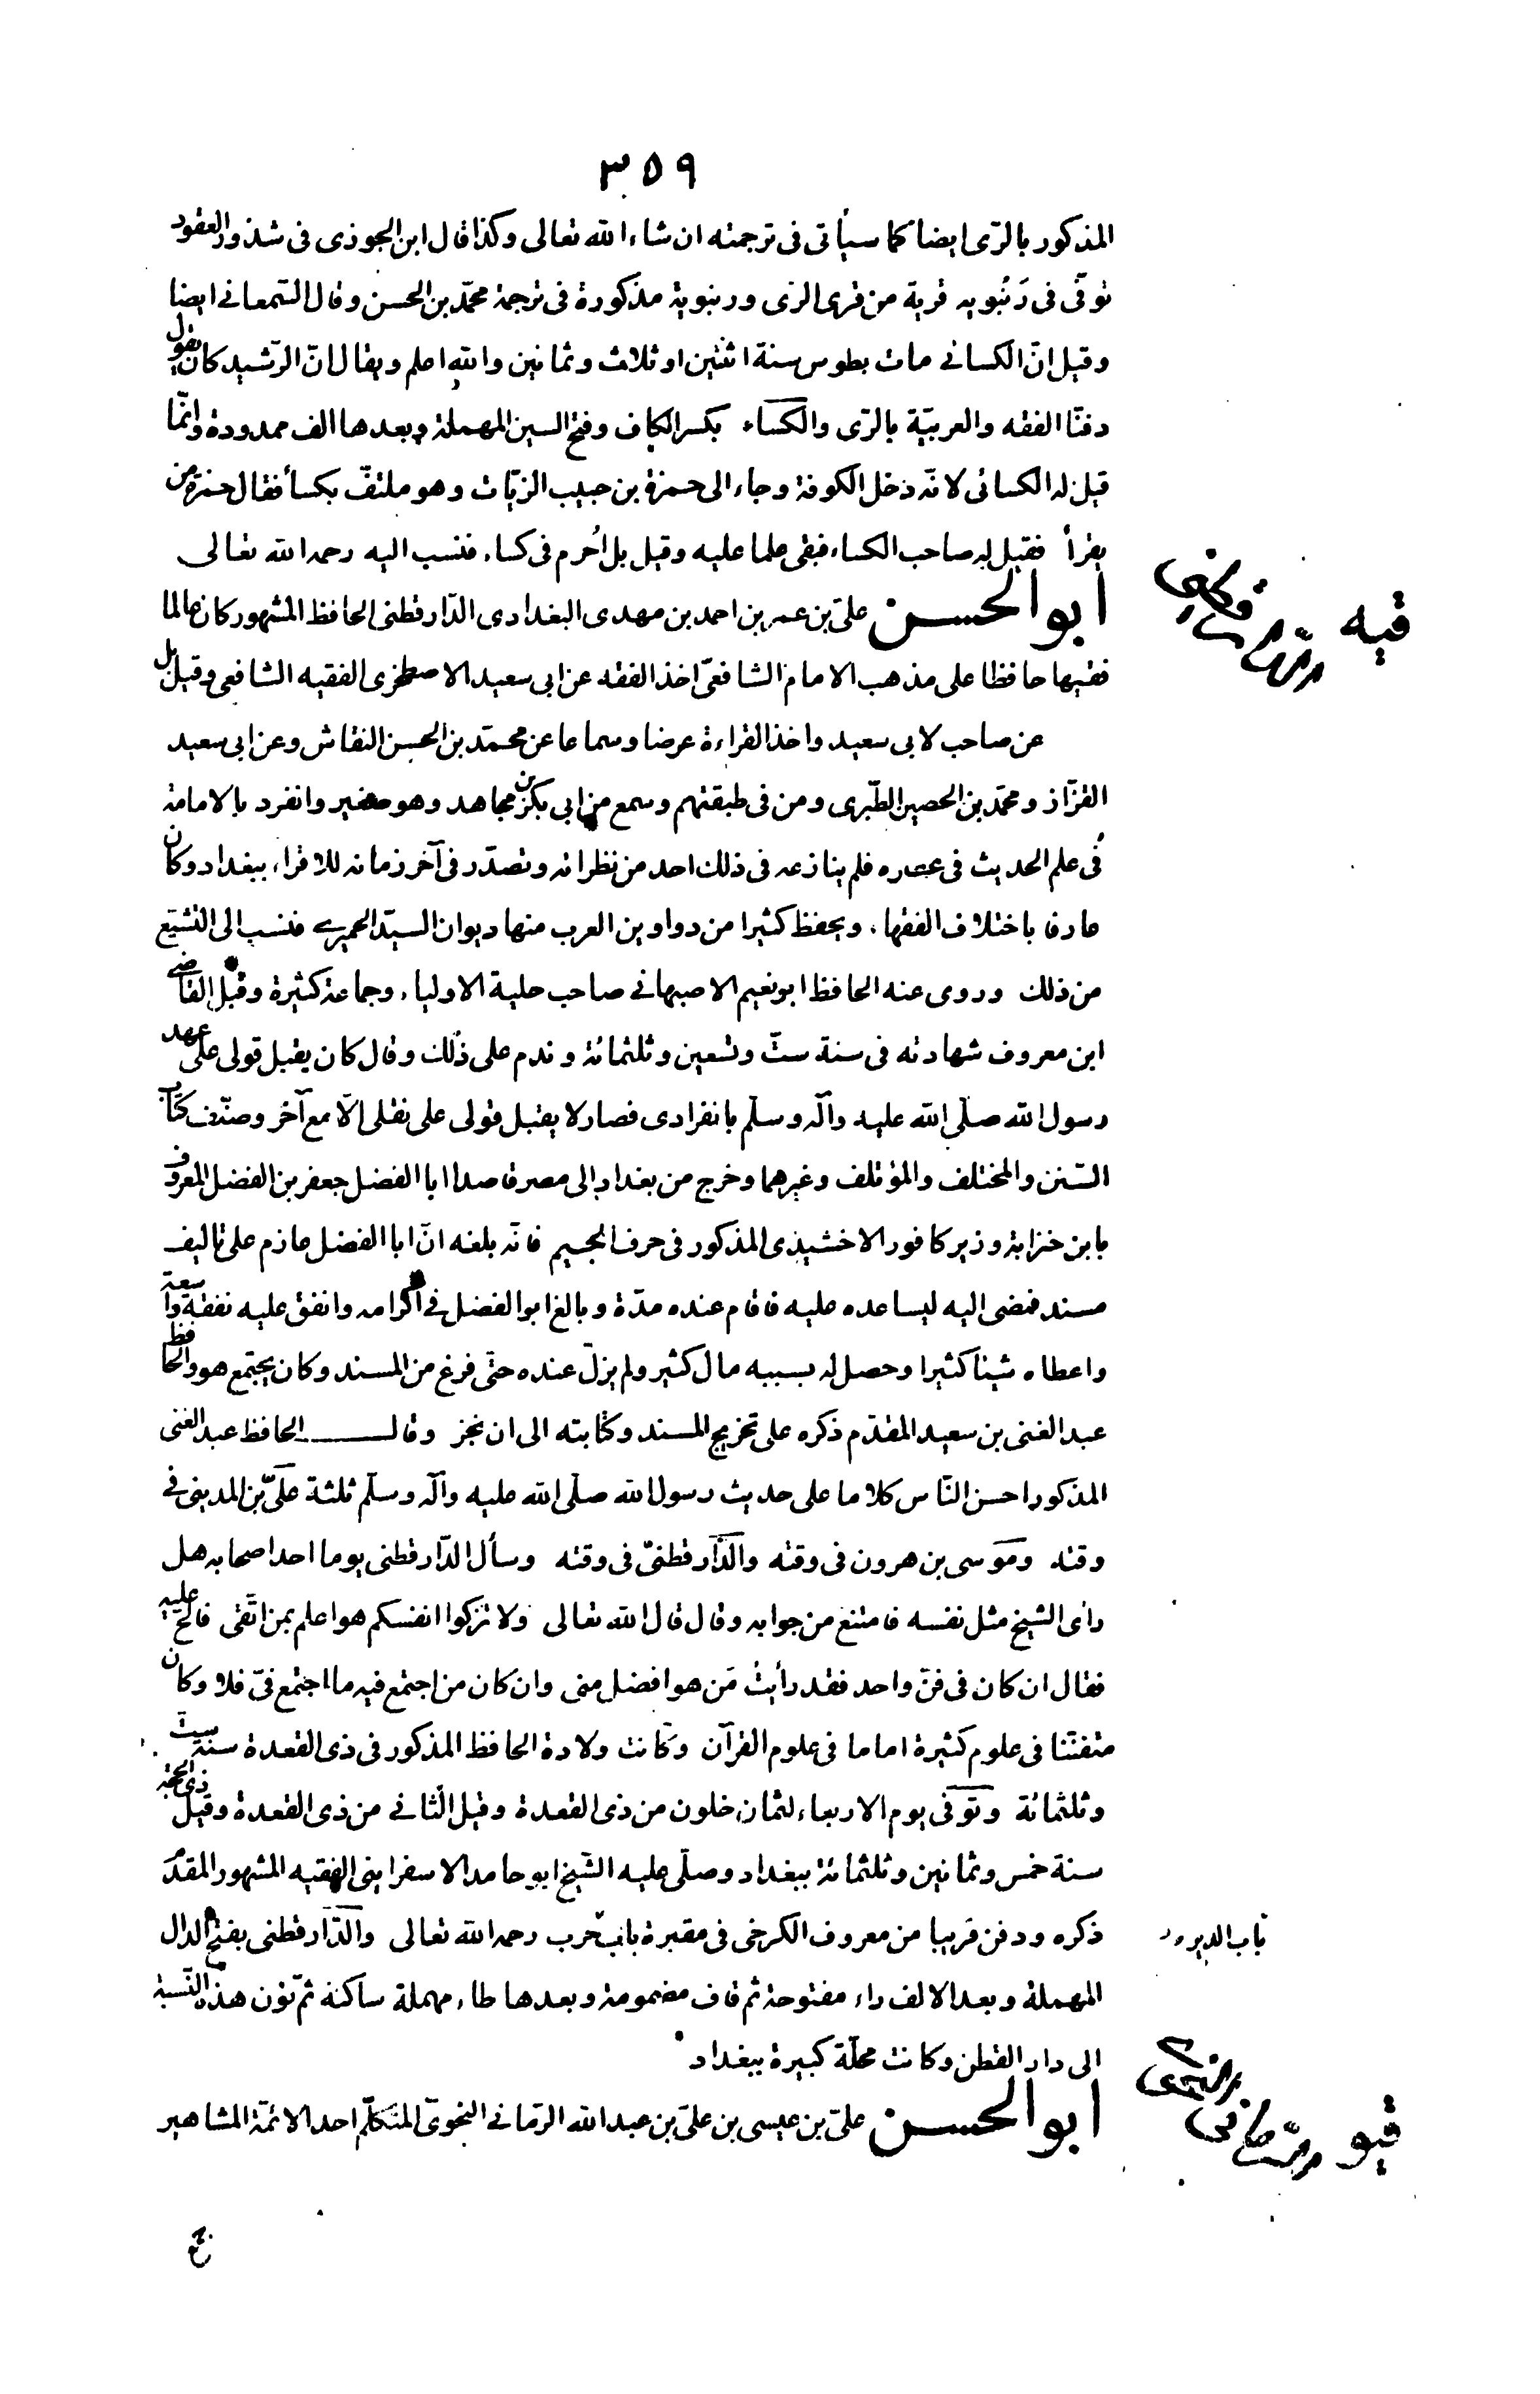 ٣٥٩
المذكور بالرّى ايضا كما سيأتى فى ترجمته ان شاء الله تعالى وكذا قال ابن الجوزى فى شذور العقود
توفّى فى رَنْبويه قرية من قرى الرى ورنبوية مذكورة فى ترجمة محمّد بن الحسن وقال السّمعانى ايضا
وقيل إنّ الكسائى مات بطوس سنة اثنتين او ثلاث وثمانين والله اعلم ويقال انّ الرّشيد كان يقول
دفنّا الفقه والعربيّة بالرّى والكساء بكسر الكاف وفتح السين المهملة وبعدها الف ممدودة وانّما
قيل له الكسائى لانّه دخل الكوفة وجاء الى حمزة بن حبيب الزيّات وهو ملتفّ بكسأ فقال حمزة من
يقرأ فقيل له صاحب الكساء فبقى علما عليه وقيل بل اُحرم فى كساء فنسب اليه رحمه الله تعالى
ابو الحسن علىّ بن عمر بن احمد بن مهدى البغدادى الدّارقطنى الحافظ المشهور كان عالما
قيه
فقيها حافظا على مذهب الامام الشافعىّ اخذ الفقه عن ابى سعيد الاصطخرى الفقيه الشافعى وقيل بل
عن صاحب لابى سعيد واخذ القراءة عرضا وسماعا عن محمّد بن الحسن النقاش وعن ابى سعيد
القزّاز ومحمّد بن الحصين الطّبرى ومن فى طبقتهم وسمع من ابى بكر بن مجاهد وهو صغير وانفرد بالامامة
فى علم الحديث فى عصره فلم ينازعه فى ذلك احد من نظرائه وتصدّر فى آخر زمانه للاقراء ببغداد وكان
عارفا باختلاف الفقهاء ويحفظ كثيرا من دواوين العرب منها ديوان السيّد الحميرى فنسب الى التشيّع
من ذلك وروى عنه الحافظ ابو نعيم الاصبهانى صاحب حلية الاولياء وجماعة كثيرة وقبل القاضى
ابن معروف شهادته فى سنة ستّ وتسعين وثلثمائة وندم على ذلك وقال كان يقبل قولى على عهد
رسول الله صلّى الله عليه وآله وسلّم بانفرادى فصار لا يقبل قولى على نقلى الّا مع آخر وصنّف كتاب
السّنن والمختلف والمؤتلف وغيرهما وخرج من بغداد الى مصر قاصدا ابا الفضل جعفر بن الفضل المعروف
بابن خنزابة وزير كافور الاخشيذى المذكور فى حرف الجيم فانّه بلغه انّ ابا الفضل عازم على تاليف
مسند فمضى اليه ليساعده عليه فاقام عنده مدّة وبالغ ابو الفضل فى اكرامه وانفق عليه نفقة واسعة
واعطاه شيئا كثيرا وحصل له بسببه مال كثير ولم يزل عنده حتّى فرغ من المسند وكان يجتمع هو والحافظ
عبد الغنى بن سعيد المقدّم ذكره على تخريج المسند وكتابته الى ان نجز وقال الحافظ عبد الغنى
المذكور احسن النّاس كلاما على حديث رسول الله صلّى الله عليه وآله وسلّم ثلثة علىّ بن المدينى فى
وقته وموسى بن هرون فى وقته والدّارقطنىّ فى وقته وسأل الدّارقطنى يوما احد اصحابه هل
رأى الشيخ مثل نفسه فامتنع من جوابه وقال قال الله تعالى ولا تزكوا انفسكم هو اعلم بمن اتّقى فالحّ عليه
فقال ان كان فى فنّ واحد فقد رأيتُ مَن هو افضل منى وان كان من اجتمع فيه ما اجتمع فىّ فلا وكان
متفنّنا فى علوم كثيرة اماما فى علوم القرآن وكانت ولادة الحافظ المذكور فى ذى القعدة سنة ستّ
وثلثمائة وتوفى يوم الاربعاء لثمان خلون من ذى القعدة وقيل الثّانى من ذى القعدة وقيل ذى الحجة
سنة خمس وثمانين وثلثمائة ببغداد وصلّى عليه الشّيخ ابو حامد الاسفراينى الفقيه المشهور المقدّم
ذكره ودفن قريبا من معروف الكرخى فى مقبرة باب حرب رحمه الله تعالى والدّارقطنى بفتح الدال
باب الدير
المهملة وبعد الالف راء مفتوحة ثم قاف مضمومة وبعدها طاء مهملة ساكنة ثمّ نون هذه النّسبة
الى دار القطن وكانت محلّة كبيرة ببغداد
ابو الحسن علىّ بن عيسى بن علىّ بن عبد الله الرمّانى النحوىّ المتكلّم احد الائمّة المشاهير
قيو